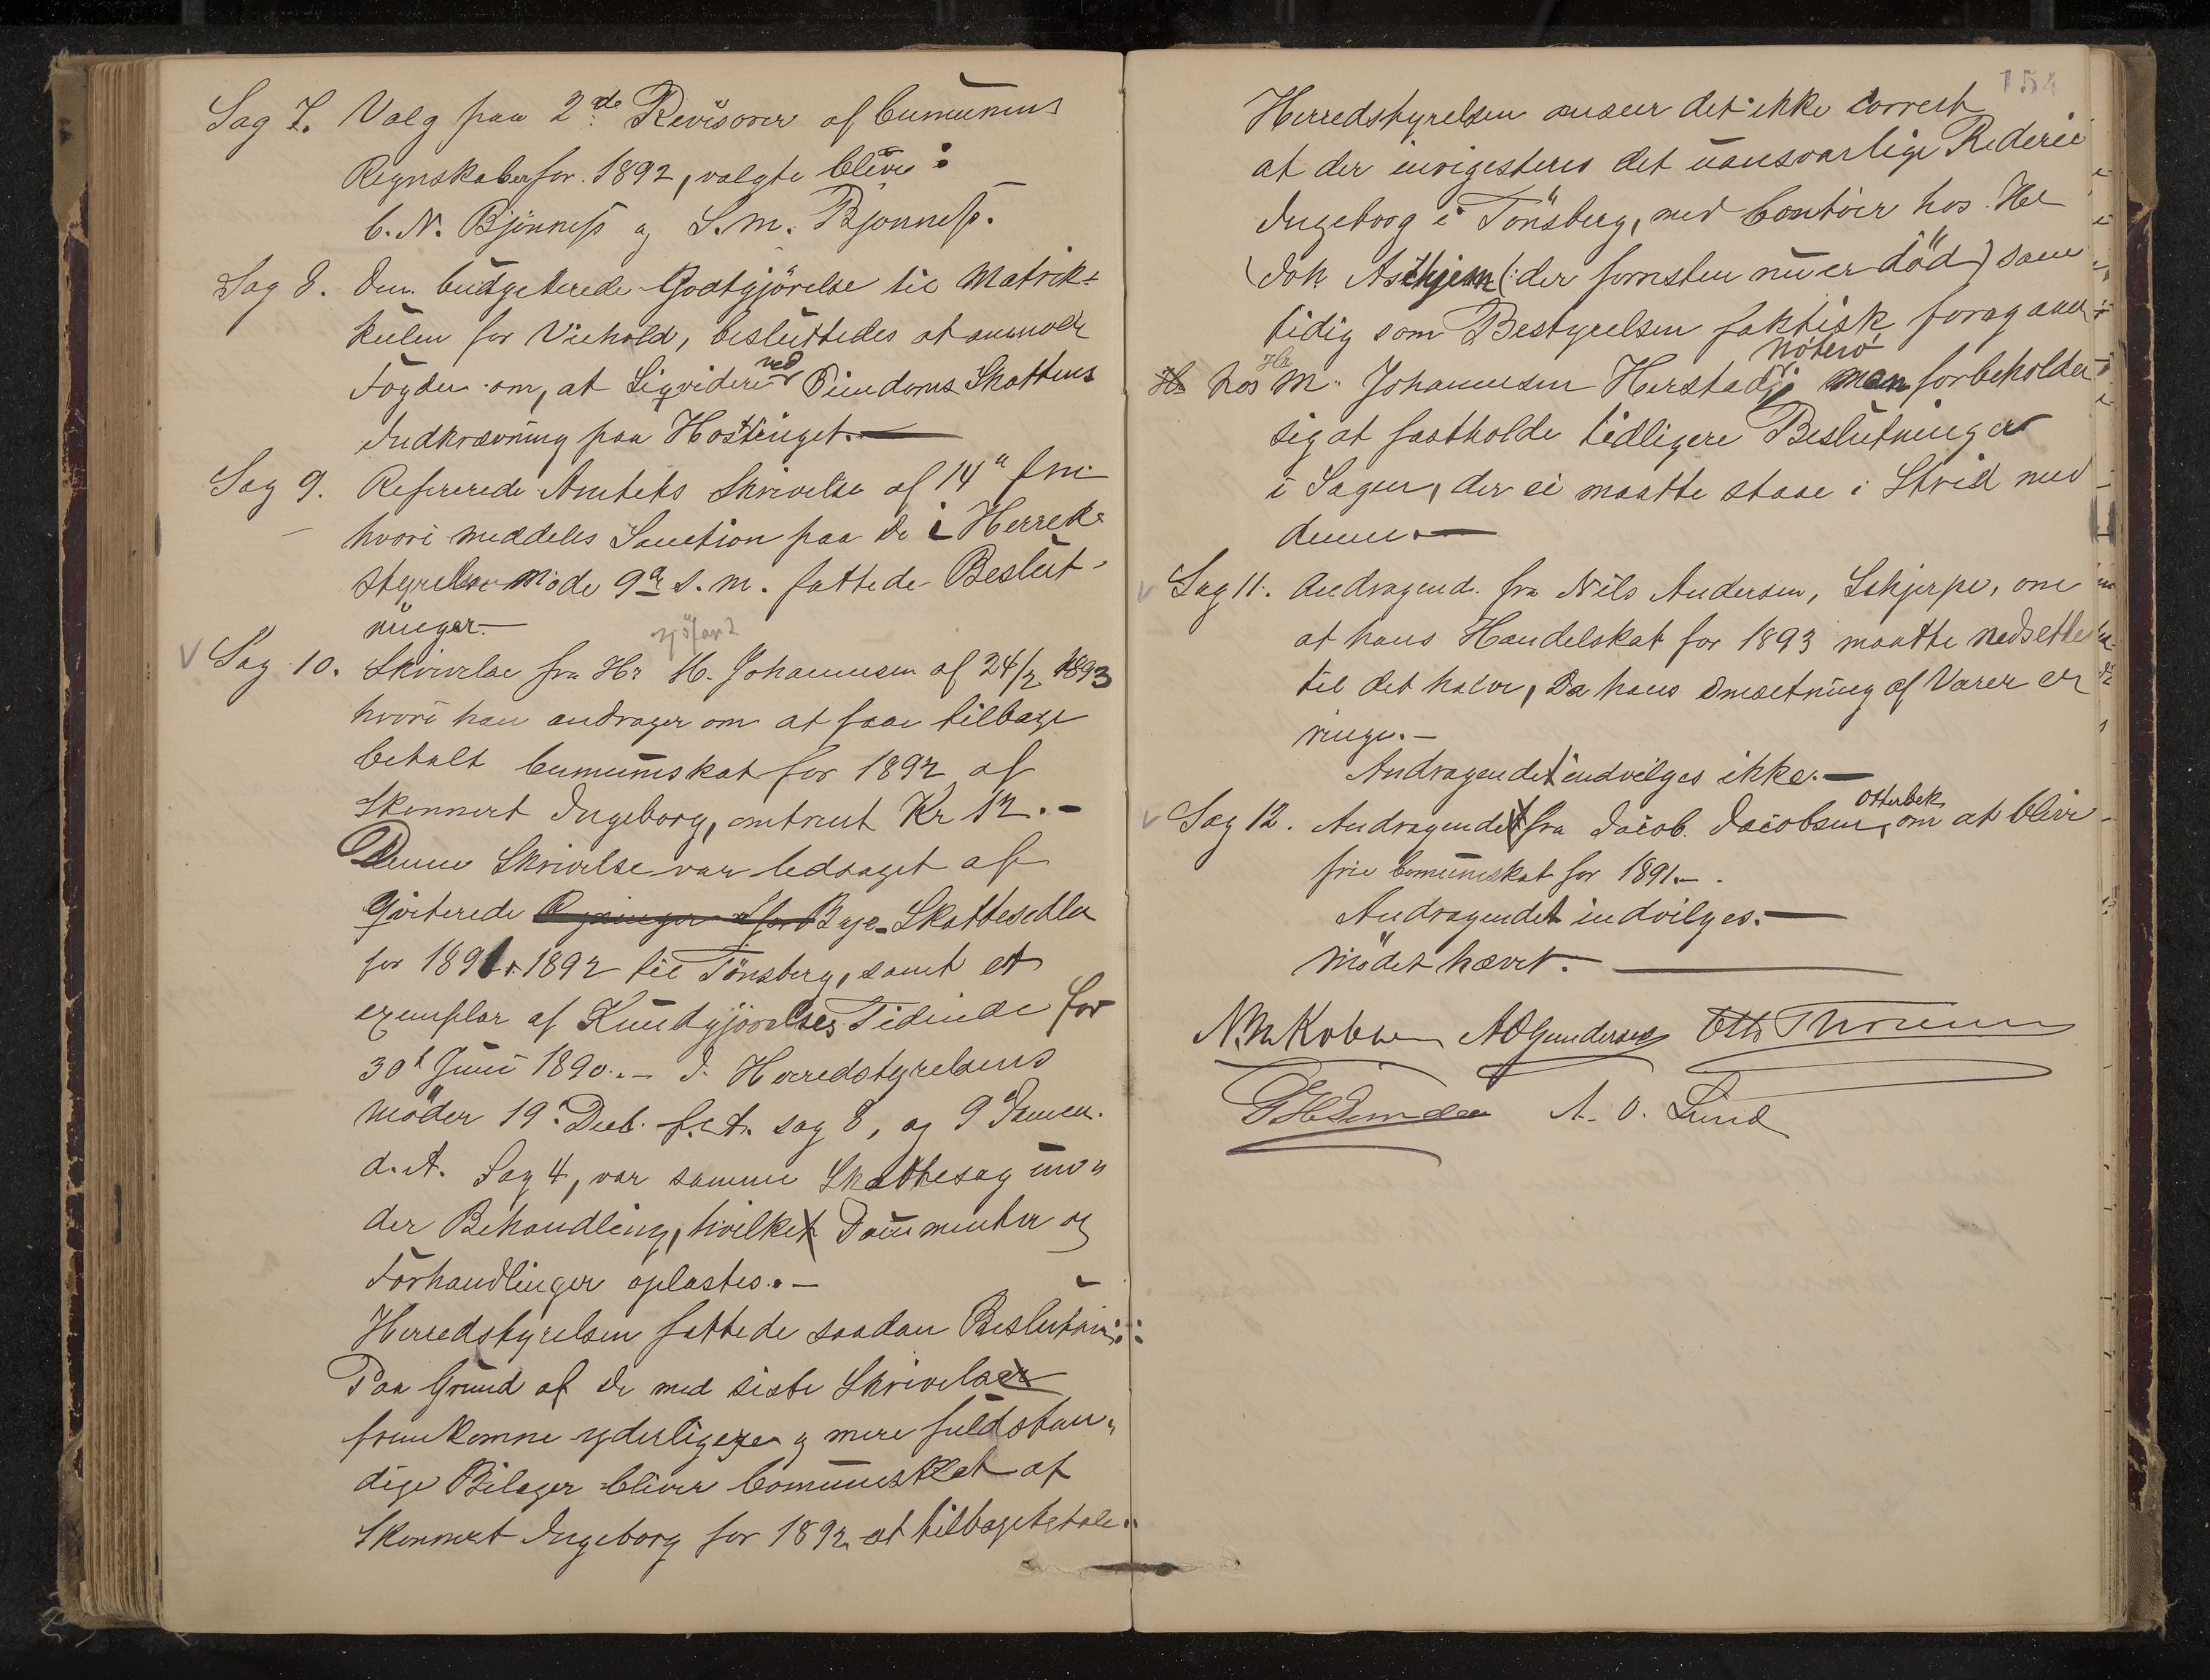 Sag 7. Valg paa 2de Revisorer af Cumunens
Regnskaber for 1892, valgte blive:
C. N. Bjönness og S. M. Bjonness.
Sag 8. Den budgeterede Godtgjörelse til Matrik-
kulen for Viehold, besluttedes at anmode
Fogden om, at Liqvidere ved Eiendoms Skattens
Indkrævning paa Hosttinget.—
Sag 9. Refererede Amtets Skrivelse af 14" fm
hvori meddeles Sanction paa de i Herreds
styrelsen Möde 9de s. m. fattede Beslut-
ninger.—
Sag 10. Skrivelse fra Hr M. Johannesen af 24/2 1893
hvori han andrager om at faae tilbage
betalt Cumunskat for 1892 af
Skonnert Ingeborg, omtrent Kr 12.-
Denne Skrivelse var ledsaget af
Qviterede Bye-Skattesedler
for 1891 & 1892 til Tönsberg, samt et
exemplar af Kundgjörelses Tidende for
30t Juni 1890.— I Herredstyrelsens
möder 19. Decb. f. A. sag 8, og 9 Januar.
d. A. Sag 4, var samme Skattesag un-
der Behandling, hvilket Documenter og
Forhandlinger oplæstes.—
Herredstyrelsen fattede saadan Beslutning:
Paa Grund af de med siste Skrivelser
fremkomne yderligere og mere fuldstæn-
dige Bilager bliver Comuneskat af
Skonnert Ingeborg for 1892 at tilbagebetale.
154
Herredstyrelsen anseer det ikke correct
at der invigesteres det uansvarlige Rederie
Ingeborg i Tönsberg, med Contoir hos Hr
Joh Aschjem (: der fornsten nu er död) sam
tidig som Bestyrelsen faktisk foregaaer
hos Hr M. Johannesen Herstad, Nöterö man forbeholder
sig at fastholde tidligere Beslutninger
i Sagen, der ei maatte staae i Strid med
denne.—
Sag 11. Andragende fra Nils Andersen, Skjerpe, om
at hans Handelskat for 1893 maatte nedsettes
til det halve, Da hans Omsetning af Varer er
ringe.—
Andragendet indvilges ikke.—
Sag 12. Andragende fra Jacob Jacobsen, Otterbek, om at blive
frie Comuneskat for 1891.—
Andragendet indvilges.—
Mödet hævet.—
A O Gundersen Otto Thoresen
A. O. Lund